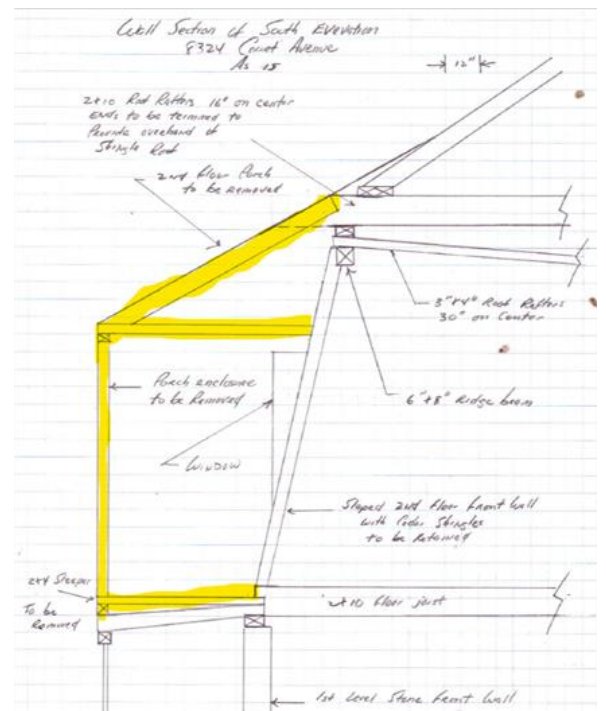 Wall Section of South Evevation
8324 Comet Avenue
As is
12"
2x10 Roof Rafters 16" on center
Ends to be trimmed to
Provide overhand of
Shingle Roof
2nd floor Porch
to be Removed
3"x4" Roof Rafters
30" on Center
Porch enclosure
to be Removed
6"x8" Ridge beam
Window
Sloped 2nd floor front Wall
with Cedar Shingles
to be Retained
2x4 Sleeper
To be
Removed
2x10 floor joist
1st Level Stone Front Wall